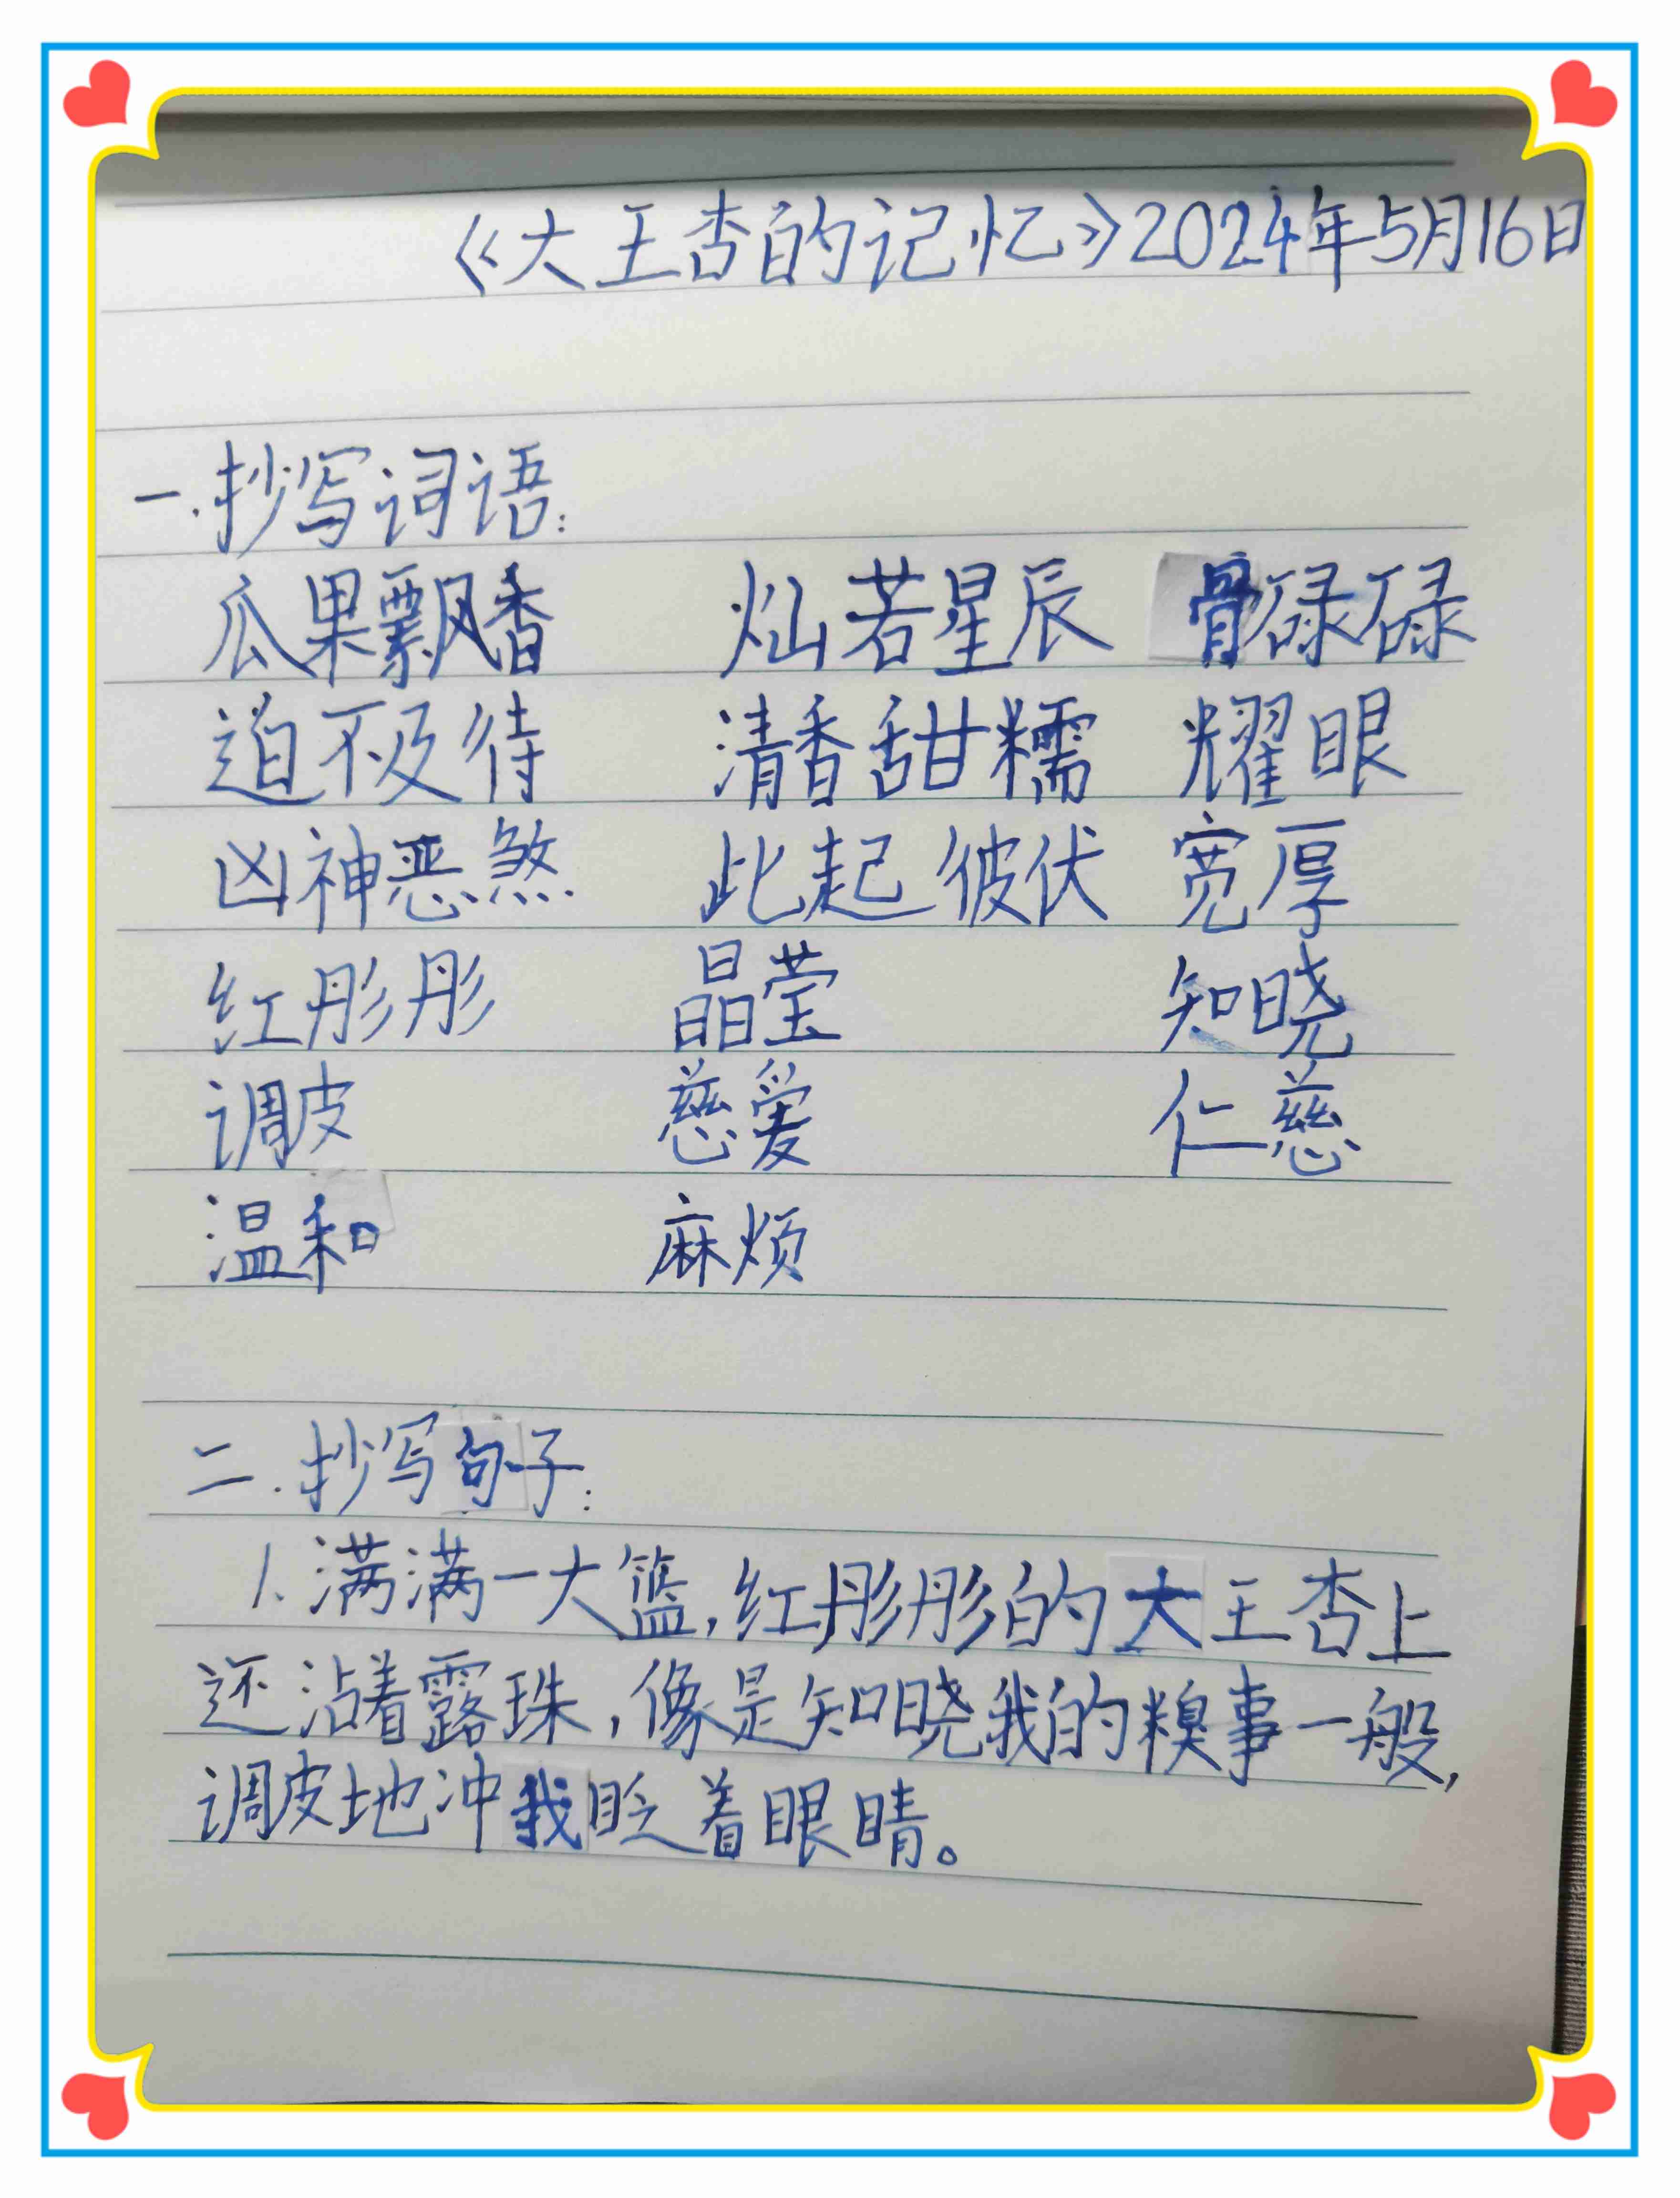 《大王杏的记忆》2024年5月16日
一.抄写词语:
瓜果飘香 灿若星辰 骨碌碌
迫不及待 清香甜糯 耀眼
凶神恶煞 此起彼伏 宽厚
红彤彤 晶莹 知晓
调皮 慈爱 仁慈
温和 麻烦
二.抄写句子:
1.满满一大篮,红彤彤的大王杏上
还沾着露珠,像是知晓我的糗事一般,
调皮地冲我眨着眼睛。